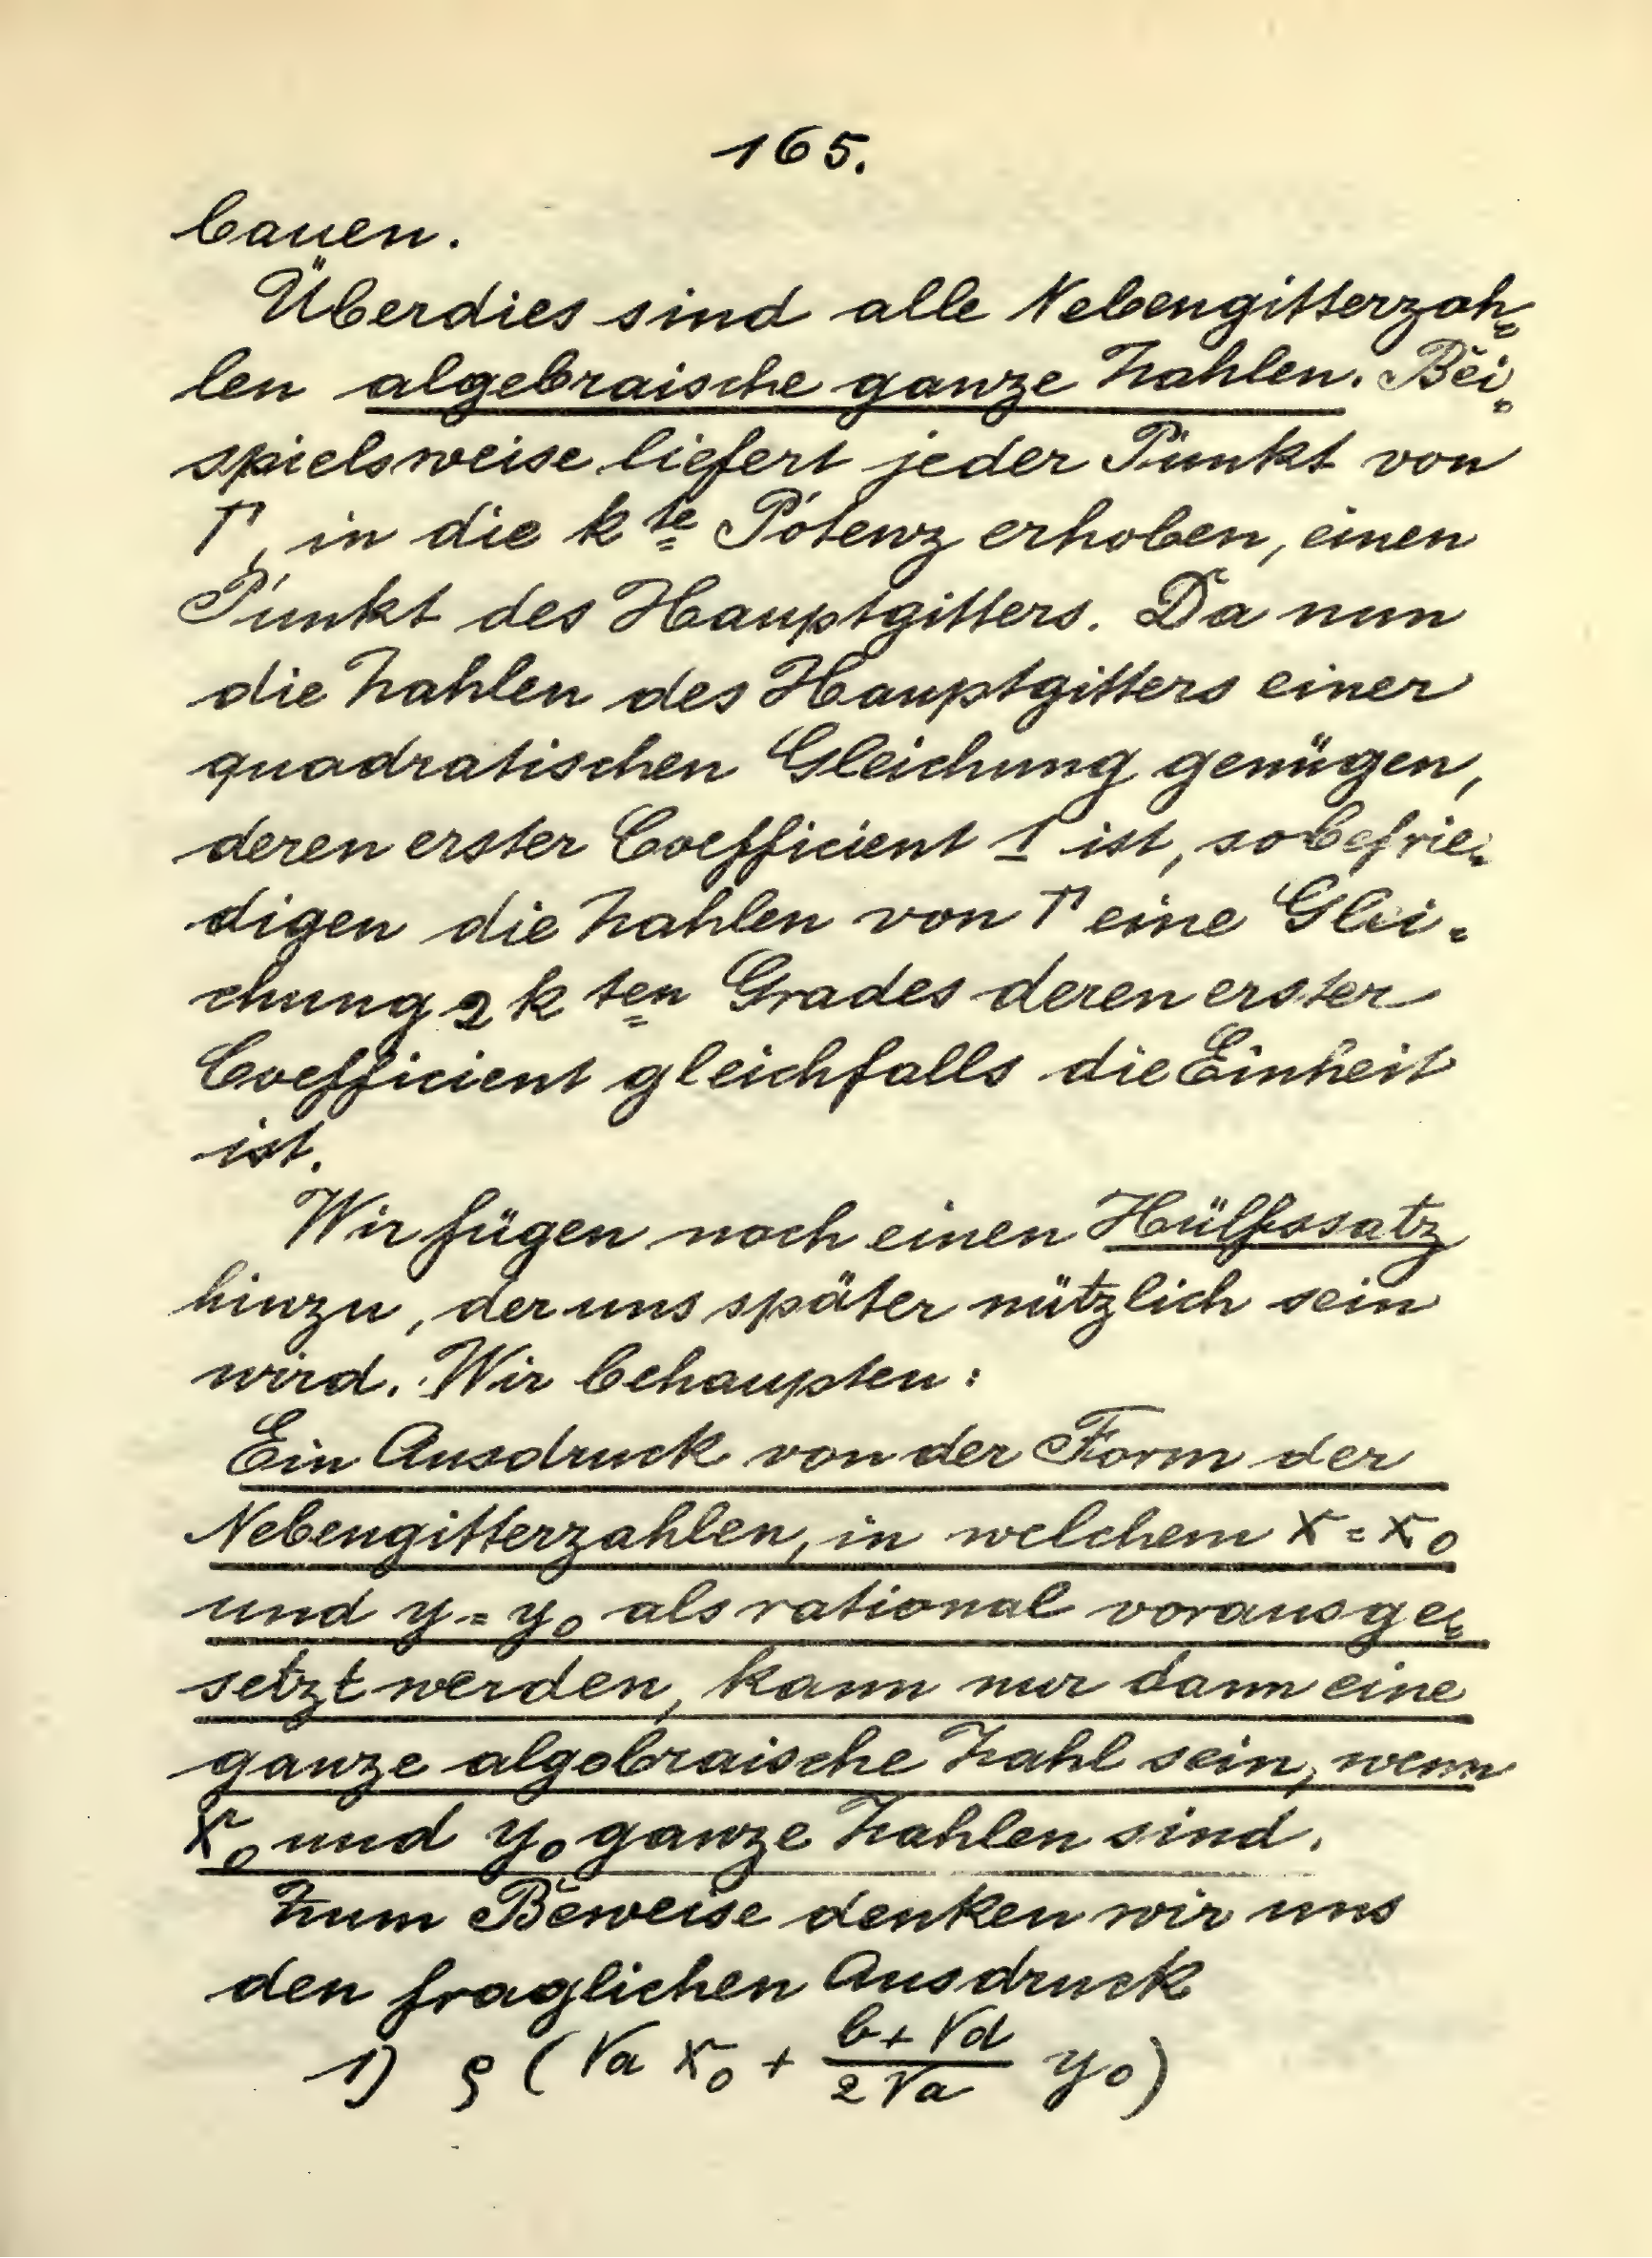 165.
bauen.
Überdies sind alle Nebengitterzah=
len algebraische ganze Zahlen. Bei=
spielsweise liefert jeder Punkt von
Γ, in die k te Potenz erhoben, einen
Punkt des Hauptgitters. Da nun
die Zahlen des Hauptgitters einer
quadratischen Gleichung genügen,
deren erster Coefficient 1 ist, so befrie=
digen die Zahlen von Γ eine Glei=
chung 2k ten Grades deren erster
Coefficient gleichfalls die Einheit
ist.
Wir fügen noch einen Hülfssatz
hinzu, der uns später nützlich sein
wird. Wir behaupten:
Ein Ausdruck von der Form der
Nebengitterzahlen, in welchem x = x₀
und y = y₀ als rational vorausge=
setzt werden, kann nur dann eine
ganze algebraische Zahl sein, wenn
x₀ und y₀ ganze Zahlen sind.
Zum Beweise denken wir uns
den fraglichen Ausdruck
1) ϱ (√a x₀ + (b+√d)/(2√a) y₀)